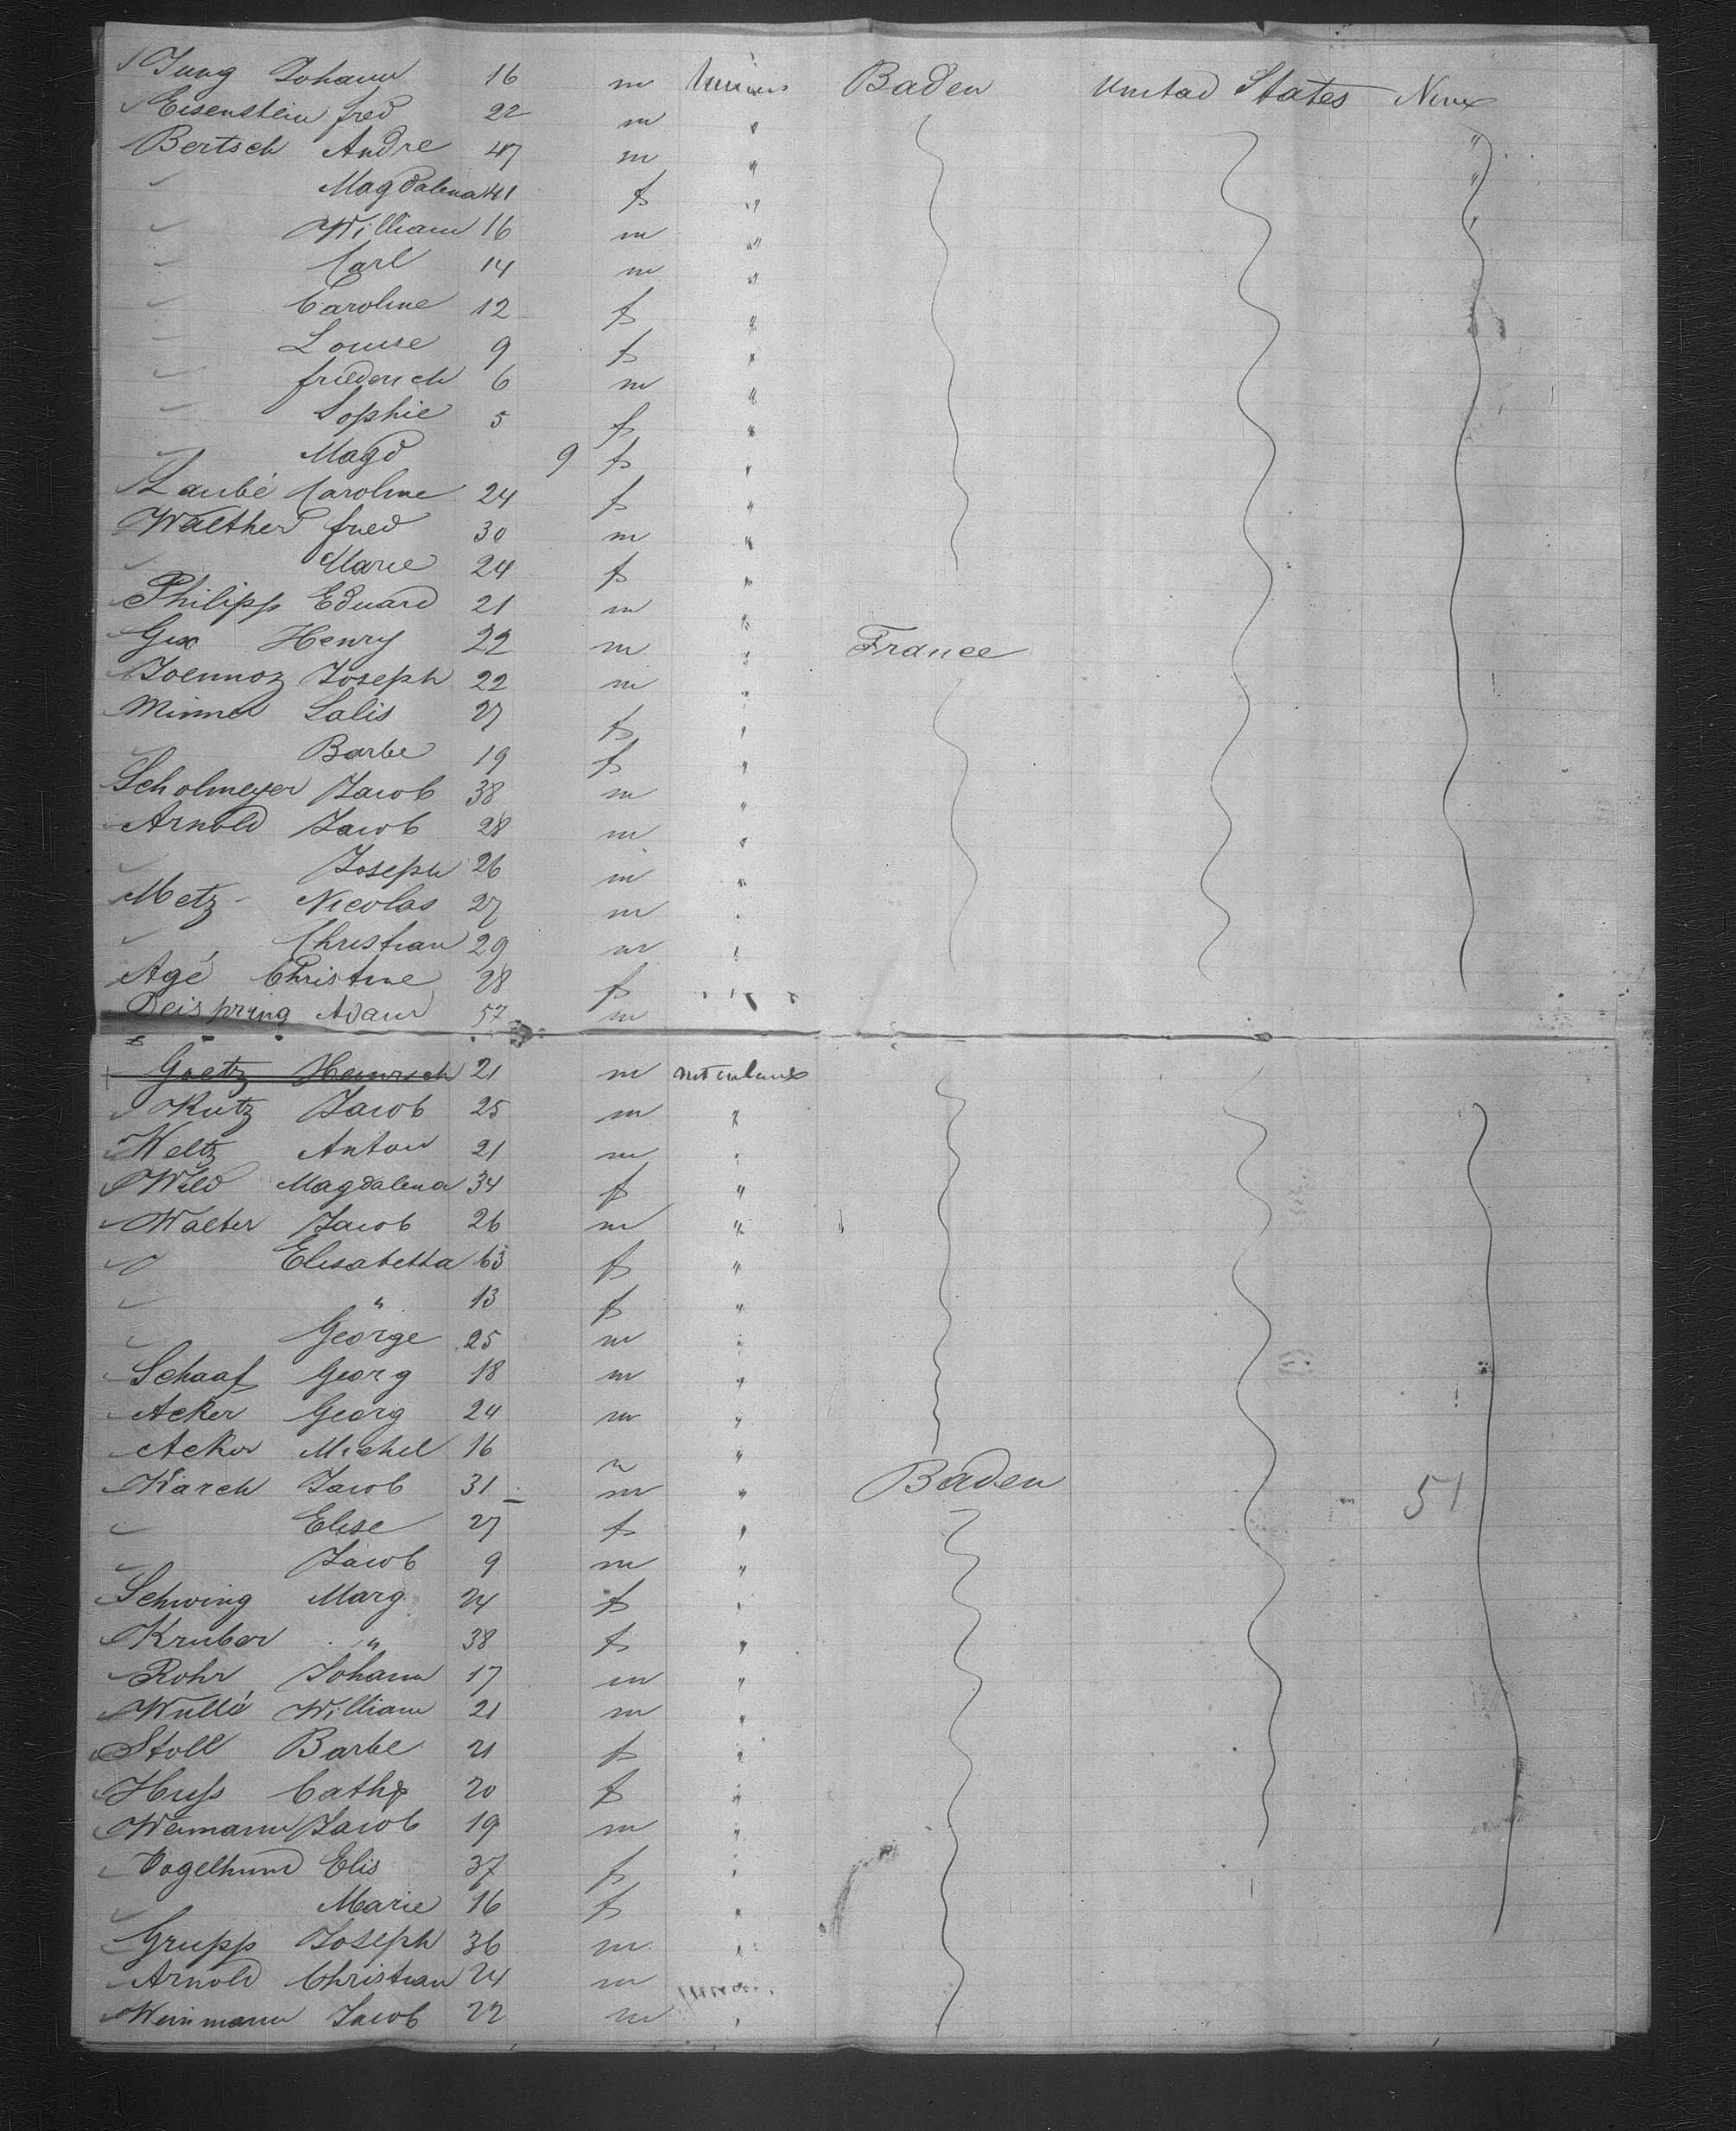 Jung Johann 16 m Baden United States New
Eisenstein fred 22 m " "
Bertsch Andre 47 m " "
Magdalena 41 f "
William 16 m "
Carl 14 m "
Caroline 12 f "
Louise 9 f "
friederich 6 m "
Sophie 5 f "
Magd 9 f "
Laubé Caroline 24 f "
Walther fred 30 m "
Marie 24 f "
Philipp Eduard 21 m "
Gex Henry 22 m " France
Joseph 22 m "
Salis 27 f "
Barbe 19 f "
Scholmeyer Jacob 38 m "
Arnold Jacob 28 m "
Joseph 26 m "
Metz Nicolas 27 m "
Christian 29 m "
Agé Christine 28 f "
Reispring Adam 57 m
Goetz Heinrich 21 m
Kutz Jacob 25 m "
Weltz Anton 21 m "
Wild Magdalena 34 f "
Walter Jacob 26 m "
Elisabetha 63 f "
" 13 f "
George 25 m "
Schaaf Georg 18 m "
Acker Georg 24 m "
Acker Michel 16 "
Karch Jacob 31 m " Baden 51
Elise 27 f "
Jacob 9 m "
Schwing Marg 24 f "
Kruber " 38 f "
Rohr Johann 17 m "
Wullé William 21 m "
Stoll Barbe 21 f "
Huss Cath 20 f "
Weimann Jacob 19 m "
Vogelhund Elis 37 f "
Marie 16 f "
Grupp Joseph 36 m "
Arnold Christian 24 m
Weinmann Jacob 22 m "